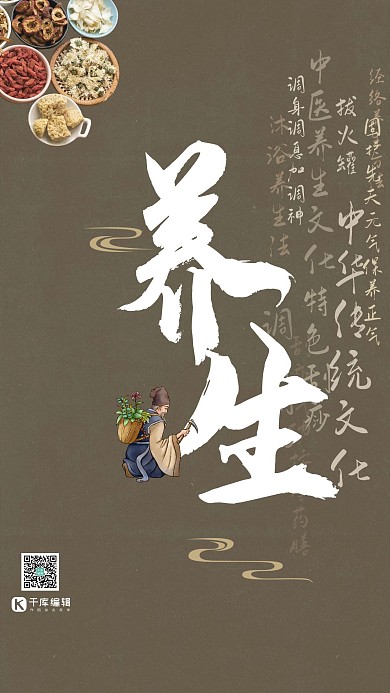 养生
经络养
天元气保养正气
拔火罐
中华传统文化
调身调息加调神
中医养生文化特色
沐浴养生法
药膳
千库编辑